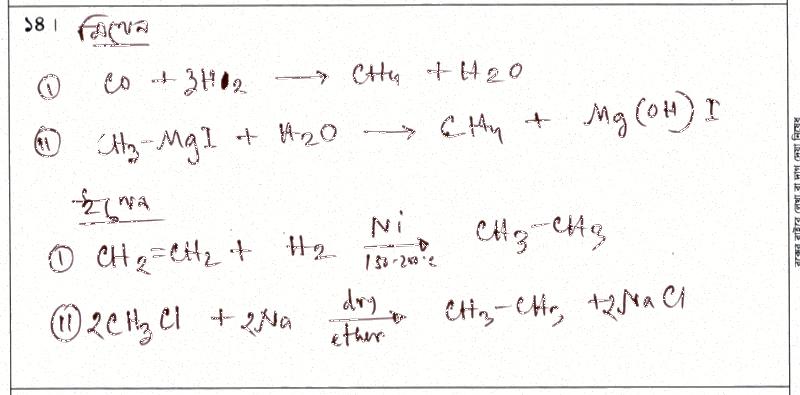 ১৪। মিথেন
(i) CO + 3H2 → CH4 + H2O
(ii) CH3-MgI + H2O → CH4 + Mg(OH)I
ইথেন
(i) CH2=CH2 + H2 Ni 150-200°C → CH3-CH3
(ii) 2CH3Cl + 2Na dry ether → CH3-CH3 + 2NaCl